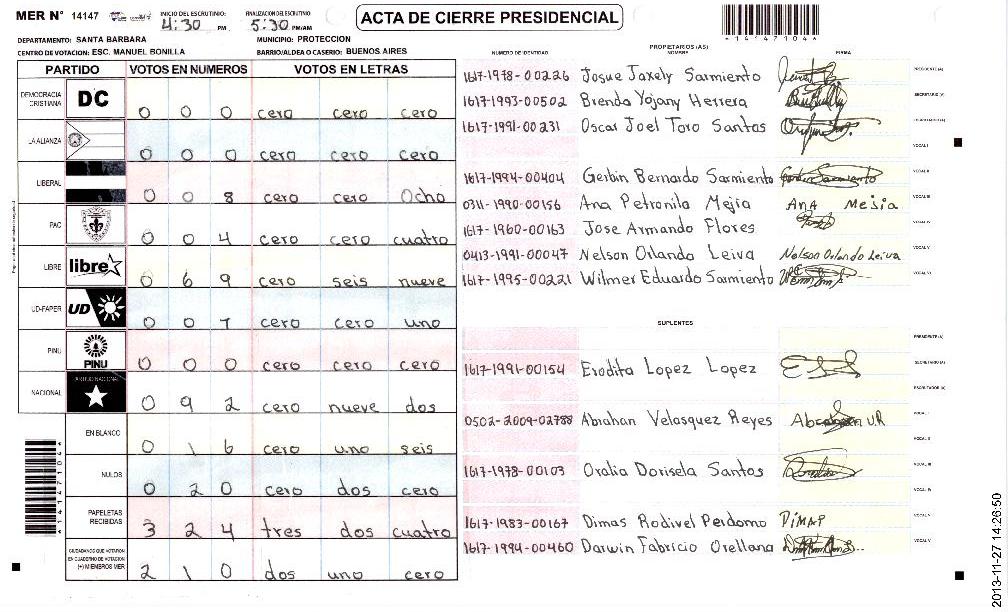 MER N° 14147 INICIO DEL ESCRUTINIO: 4:30 PM FINALIZACION DEL ESCRUTINIO: 5:30 PM/AM
ACTA DE CIERRE PRESIDENCIAL
*14147104*
DEPARTAMENTO: SANTA BARBARA MUNICIPIO: PROTECCION
CENTRO DE VOTACION: ESC. MANUEL BONILLA BARRIO/ALDEA O CASERIO: BUENOS AIRES
PARTIDO VOTOS EN NUMEROS VOTOS EN LETRAS
DEMOCRACIA CRISTIANA DC 0 0 0 cero cero cero
LA ALIANZA 0 0 0 cero cero cero
LIBERAL 0 0 8 cero cero Ocho
PAC 0 0 4 cero cero cuatro
LIBRE libre 0 6 9 cero seis nueve
UD-FAPER UD 0 0 1 cero cero uno
PINU PINU 0 0 0 cero cero cero
NACIONAL 0 9 2 cero nueve dos
EN BLANCO 0 1 6 cero uno seis
NULOS 0 2 0 cero dos cero
PAPELETAS RECIBIDAS 3 2 4 tres dos cuatro
CIUDADANOS QUE VOTARON EN CUADERNO DE VOTACION (+) MIEMBROS MER 2 1 0 dos uno cero
*14147104*
PROPIETARIOS (AS)
NUMERO DE IDENTIDAD NOMBRE FIRMA
1617-1978-00226 Josue Jaxely Sarmiento PRESIDENTE (A)
1617-1993-00502 Brenda Yojany Herrera SECRETARIO (A)
1617-1991-00231 Oscar Joel Toro Santos ESCRUTADOR (A)
VOCAL I
1617-1994-00404 Gerbin Bernardo Sarmiento VOCAL II
0311-1990-00156 Ana Petronila Mejia AnA Mejia VOCAL III
1617-1960-00163 Jose Armando Flores VOCAL IV
0413-1991-00047 Nelson Orlando Leiva Nelson Orlando Leiva VOCAL V
1617-1995-00221 Wilmer Eduardo Sarmiento VOCAL VI
SUPLENTES
PRESIDENTE (A)
1617-1991-00154 Erodita Lopez Lopez SECRETARIO (A)
ESCRUTADOR (A)
0502-2009-02788 Abrahan Velasquez Reyes VOCAL I
VOCAL II
1617-1978-00103 Oralia Dorisela Santos VOCAL III
VOCAL IV
1617-1983-00167 Dimas Rodivel Perdomo DimAP VOCAL V
1617-1994-00460 Darwin Fabricio Orellana VOCAL VI
2013-11-27 14:26:50